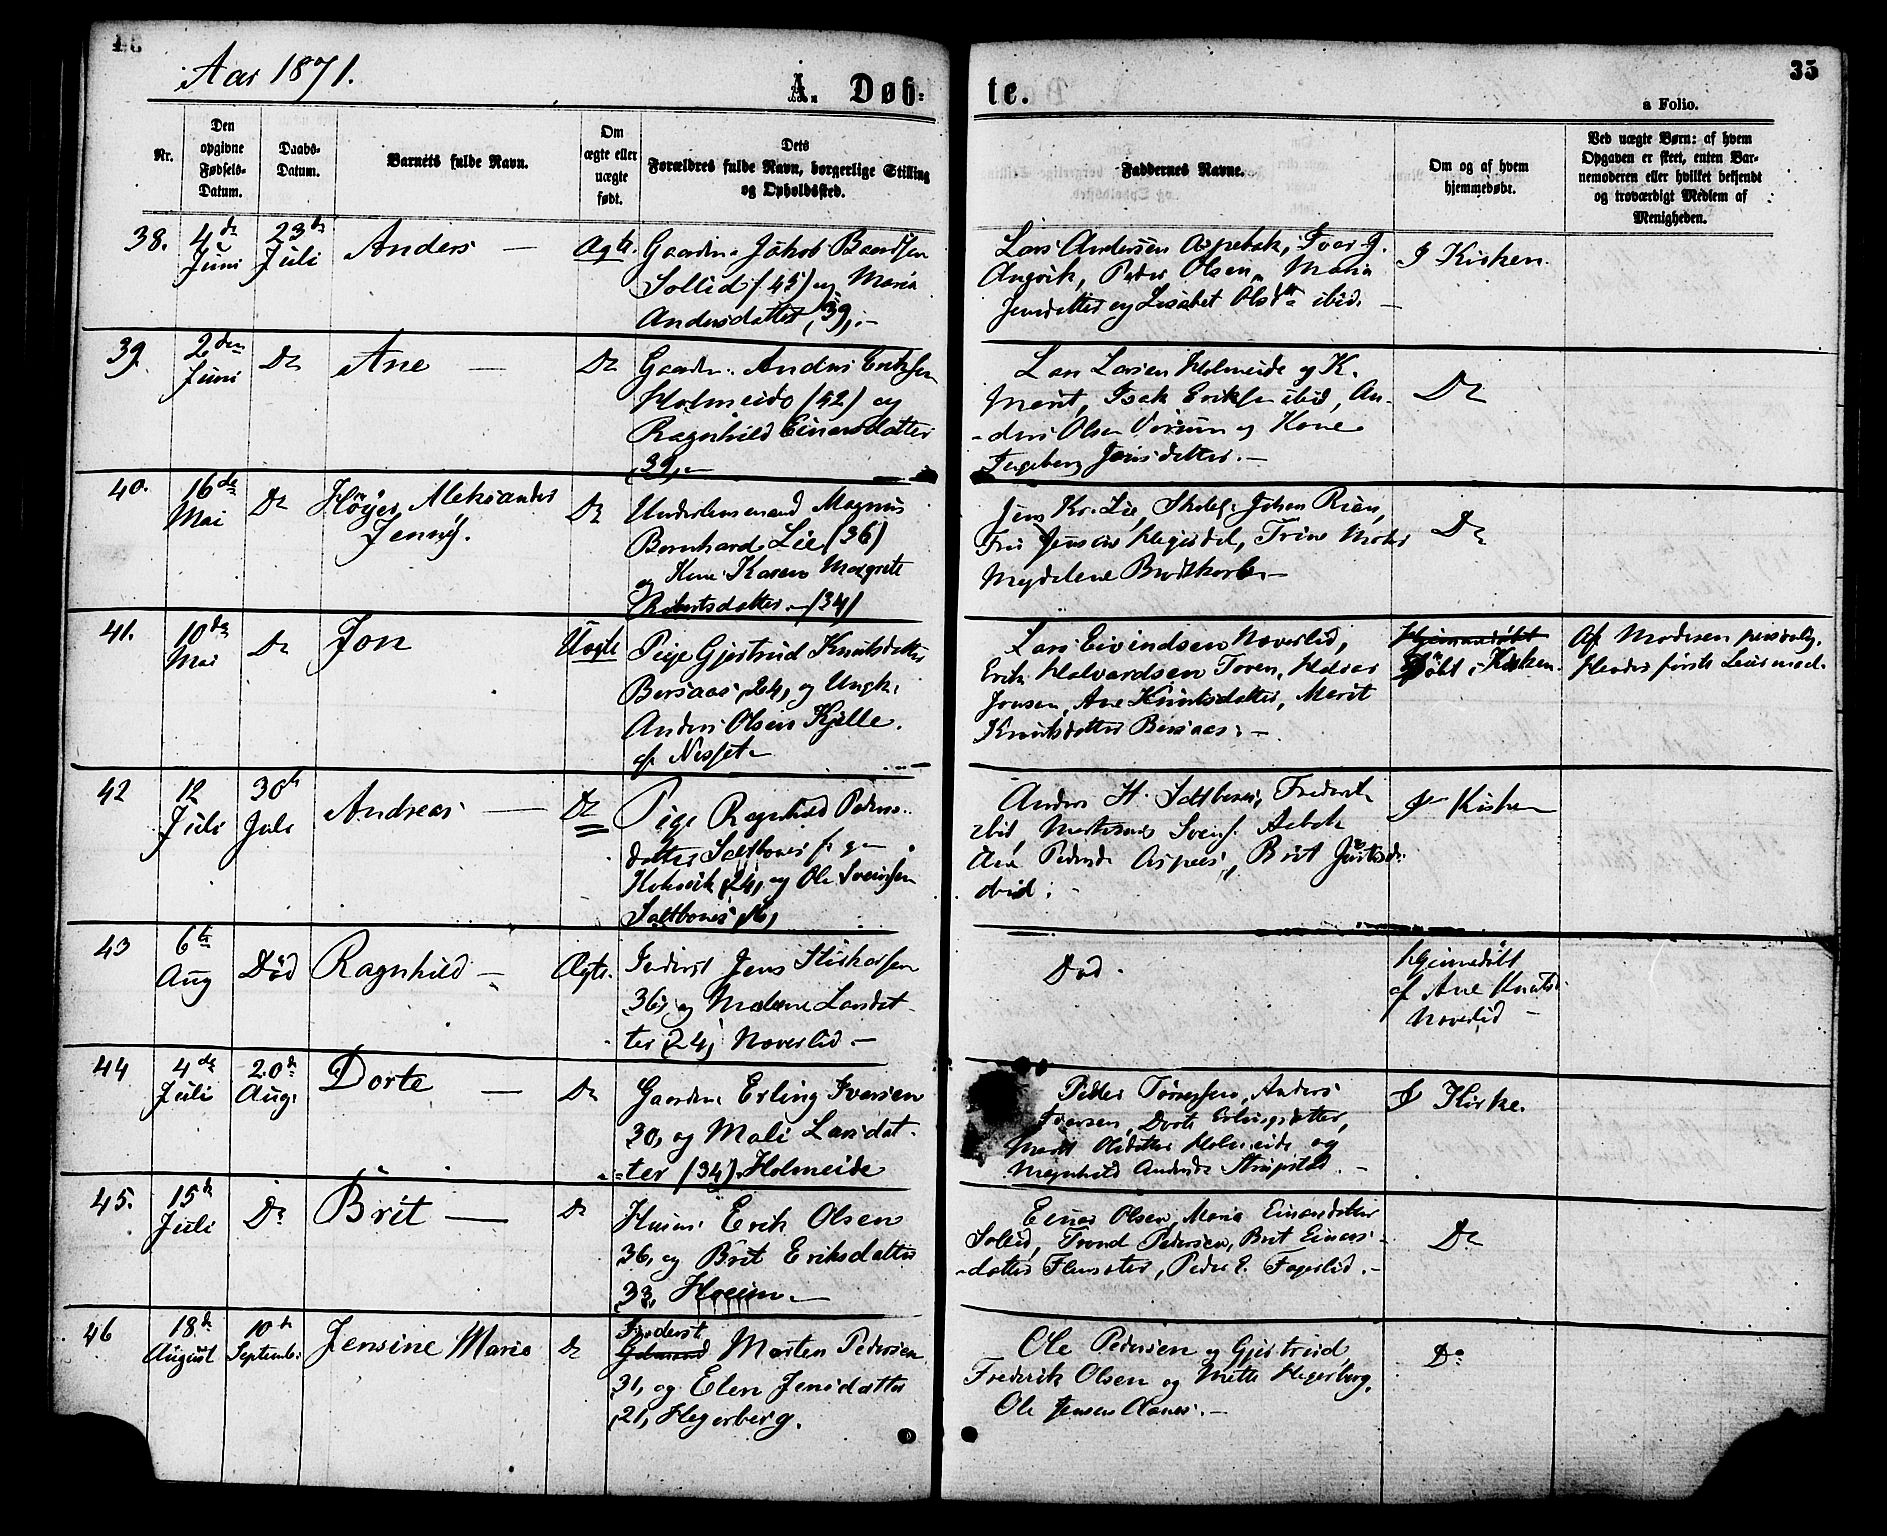 35
Aar 1871.
A. Døb-
te.
a Folio.
Nr.
Den
opgivne
Fødsels-
Datum.
Daabs-
Datum.
Barnets fulde Navn.
Om
ægte eller
uægte
født.
Dets
Forældres fulde Navn, borgerlige Stilling
og Opholdssted.
Faddernes Navne.
Om og af hvem
hjemmedøbt.
Ved uægte Børn: af hvem
Opgaven er skeet, enten Bar-
nemoderen eller hvilket bekjendt
og troværdigt Medlem af
Menigheden.
38.
4de
Juni
23de
Juli
Anders
Ægte.
Gaardm. Jakob Baardsen
Sollid (45) og Maria
Andersdatter, 39,
Lars Andersen Aspebak, Ivar J.
Angvik, Peder Olsen, Maria
Jensdatter og Lisabet Olsdtr ibid.
I Kirken.
39.
2den
Juni
Do
Ane
Do
Gaardm. Anders Eriksen
Holmeide (42) og
Ragnhild Einarsdatter
39,
Lars Larsen Holmeide og K.
Marit, Isak Eriksen ibid, An-
ders Olsen og Kone
Ingeborg Jonsdatter.
Do
40.
16de
Mai
Do
Höyer Aleksander
Jenny.
Do
Underlensmand Magnus
Bernhard Lie (36)
og Kone Karen Margrete
Robertsdatter (34)
Jens Kr. Lie, Johan
Do
41.
10de
Mai
Do
Jon
Uægte
Pige Gjertrud Knutsdatter
Bersaas, 24, og Ungk.
Anders Olsen Kjelle
af Nesset
Lars Eivindsen Noverlid,
Erik Halvardsen Toven, Halvar
Jonsen, Ane Knutsdatter, Marit
Knutsdatter Bersaas.
Hjemmedøbt
Døbt i Kirken.
Af Moderen personlig.
Hendes første Leiermaal.
42
12
Juli
30te
Juli
Andreas
Do
Pige Ragnhild Peders-
datter Saltbones
24, og Ole Sveinsen
Saltbones
Anders H. Saltbones, Frederik
ibid, Svens.
Ane Brit
ibid.
I Kirken
43
6te
Aug
Død
Ragnhild
Ægte.
Inderst Jens
36, og Malene Larsdat-
ter (24) Noverlid
Død.
Hjemmedøbt
af Ane Knutsd.
Noverlid
44
4de
Juli
20de
Aug.
Dorte
Do
Gaardm. Erling Iversen
30, og Mali Larsdat-
ter (34) Holmeide
Peder Anders
Iversen, Dorte Erlingsdatter,
Marit Olsdatter Holmeide og
Magnhild Andersdr
I Kirke.
45.
15de
Juli
Do
Brit
Do
Husm. Erik Olsen
36, og Brit Eriksdatter
33, Hoeim.
Einar Olsen, Maria Einarsdatter
Sollid, Trond Pedersen, Brit Einars-
datter Flemsæter, Peder E. Fagerlid.
Do
46
18de
August
10de
Septemb.
Jensine Marie
Do
Inderst
Morten Pedersen
31, og Elen Jensdatter
21, Hegerberg.
Ole Pedersen og Gjertrud
Frederik Olsen og Mette Hegerberg,
Ole Jensen
Do